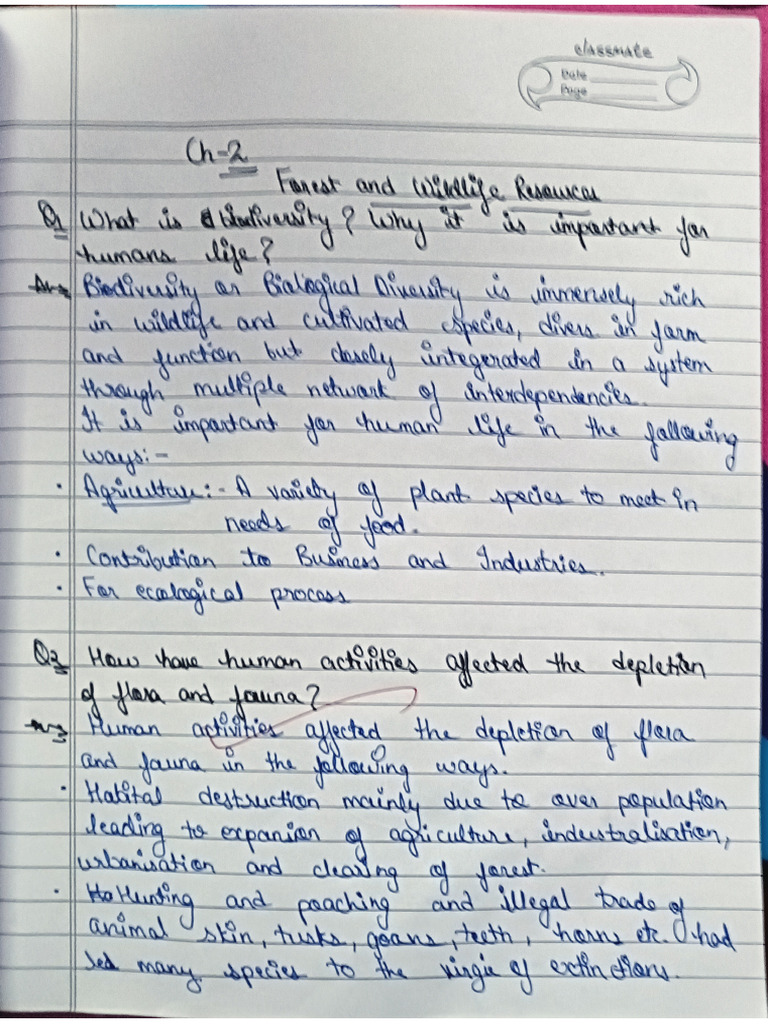 classmate
Date
Page
Ch-2
Forest and Wildlife Resources
Q1 What is biodiversity? Why it is important for
humans life?
Ans Biodiversity or Biological Diversity is immensely rich
in wildlife and cultivated species, divers in form
and function but closely integerated in a system
through multiple network of interdependencies.
It is important for human life in the following
ways:-
• Agriculture:- A variety of plant species to meet in
needs of food.
• Contribution to Business and Industries.
• For ecological process
Q2 How have human activities affected the depletion
of flora and fauna?
Ans Human activities affected the depletion of flora
and fauna in the following ways.
• Habital destruction mainly due to over population
leading to expanion of agriculture, indeustralisation,
urbanisation and clearing of forest.
• Hunting and poaching and illegal trade of
animal skin, tusks, goans, teeth, horns etc. had
led many species to the virgie of extinctions.